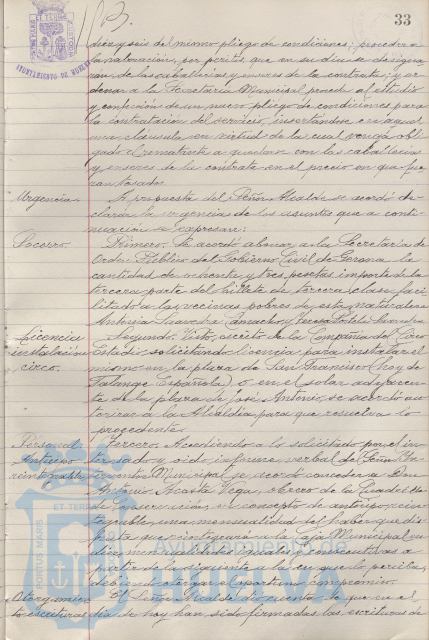 33
AYUNTAMIENTO DE HUELVA
diez y seis del mismo pliego de condiciones; proceder a
la valoración, por perito, que en su dia se designa
rán, de las caballerías y enseres de la contrata; y or
denar a la Secretaría Municipal proceda al estudio
y confección de un nuevo pliego de condiciones para
la contratación del servicio, insertándose en aquel
una cláusula, en virtud de la cual venga obli
gado el rematante a quedarse con las caballerías
y enseres de la contrata en el precio en que fue
ran tasados.
Urgencia. A propuesta del Señor Alcalde se acordó de
clarar la urgencia de los asuntos que a conti
nuación se expresan:
Socorro. Primero. Se acordó abonar a la Secretaría de
Orden Público del Gobierno Civil de Gerona la
cantidad de ochenta y tres pesetas importe de la
tercera parte del billete de tercera clase faci
litado a las vecinas pobres de esta naturaleza
Antonia Saavedra Camacho y Teresa
Licencia Segundo. Visto, escrito de la Compañía del Circo
instalación solicitando licencia para instalar el
circo. mismo en la plaza de San Francisco (hoy de
Falange Española) o en el solar adyacen
te de la plaza de José Antonio, se acordó au
torizar a la Alcaldía para que resuelva lo
procedente.
Personal. Tercero. Accediendo a lo solicitado por el in
Anticipo teresado y oido informe verbal del Señor
reintegrable Municipal, se acordó conceder a Don
Antonio Acosta Vega, obrero de la
en concepto de anticipo rein
tegrable, una mensualidad del haber que dis
fruta que reintegrará a la Caja Municipal en
diez mensualidades iguales y consecutivas a
partir de la siguiente a la en que lo perciba,
debiendo otorgar el oportuno compromiso.
Otorgamien El Señor Alcalde dió cuenta de que en el
to escrituras dia de hoy han sido firmadas las escrituras de
Ayuntamiento de
PORTUS MARIS ET TERRAE